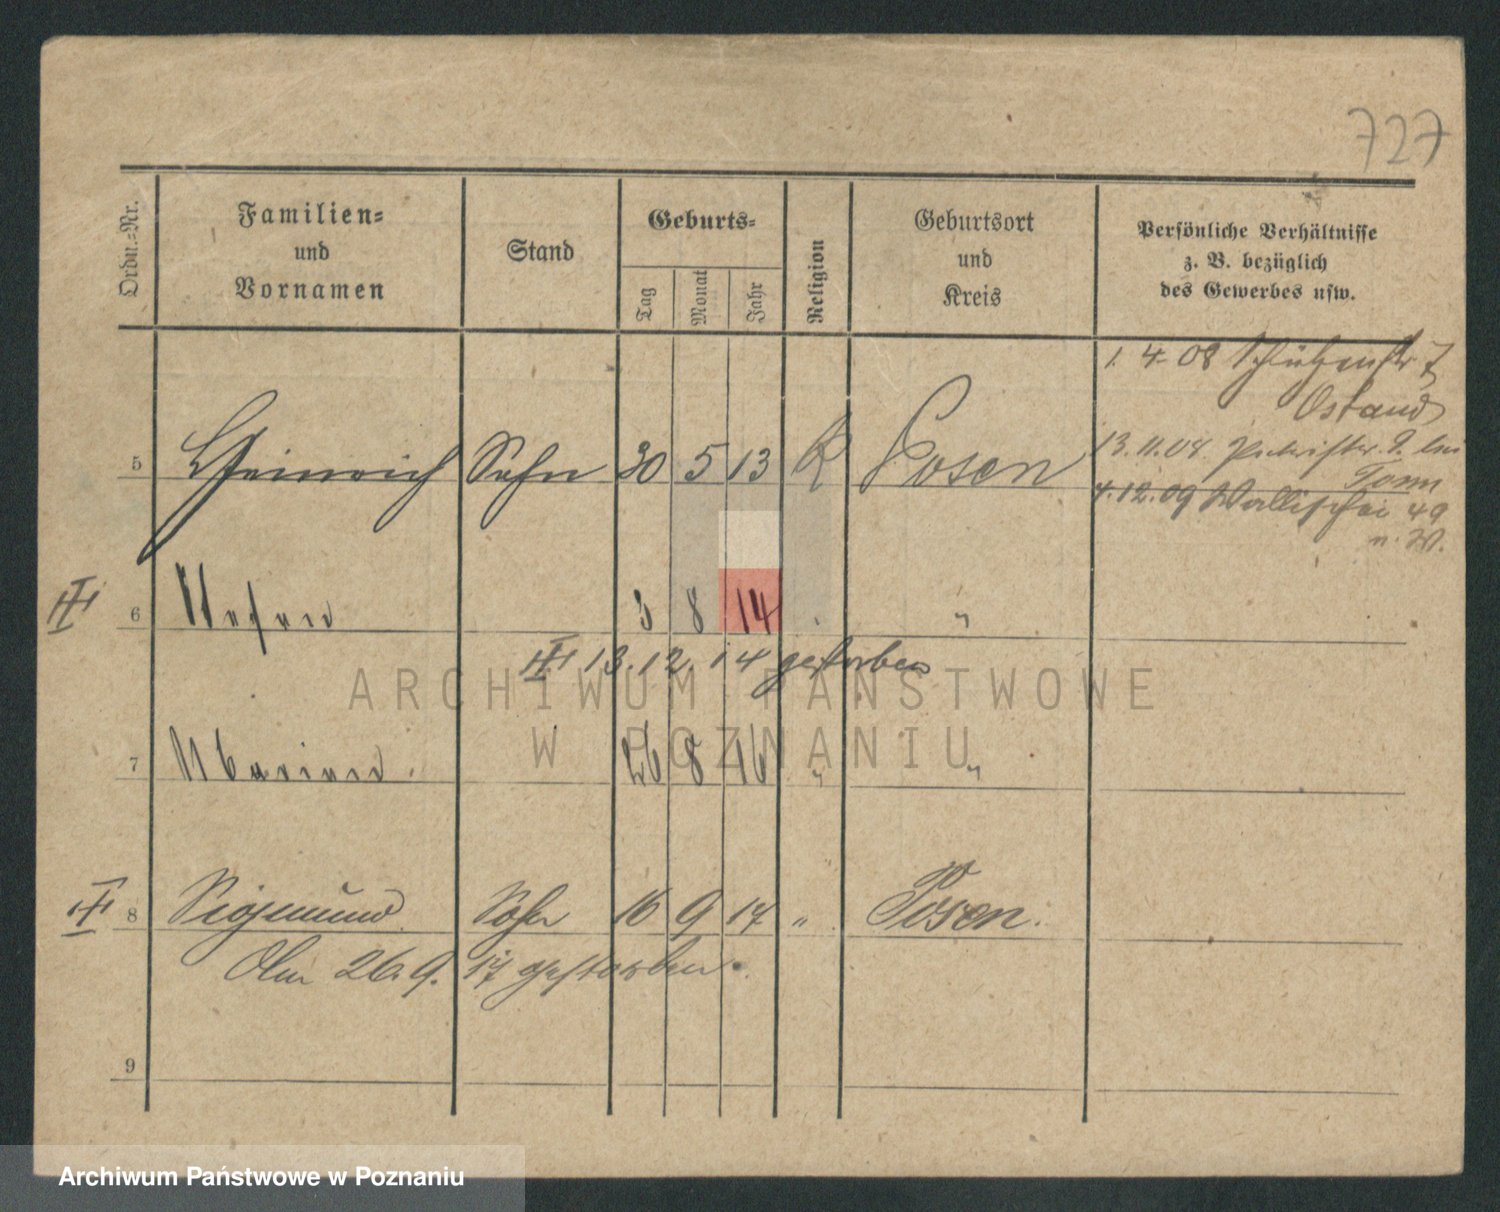 727
Ordn.-Nr.
Familien-
und
Vornamen
Stand
Geburts-
Tag
Monat
Jahr
Religion
Geburtsort
und
Kreis
Persönliche Verhältnisse
z. B. bezüglich
des Gewerbes usw.
1. 4 08 Schützenstr 7
Ostand
13.11.08. 9. bei
5 Heinrich Sohn 30 5 13 K Posen
4.12.09 Wallischei 49
n. W.
6 3 8 14 "
13.12.14 gestorben
ARCHIWUM PAŃSTWOWE
W POZNANIU
7 Marian 26 8 16 " "
8 Sigismund Sohn 16 9 17 " Posen.
Am 26.9.17 gestorben.
9
Archiwum Państwowe w Poznaniu